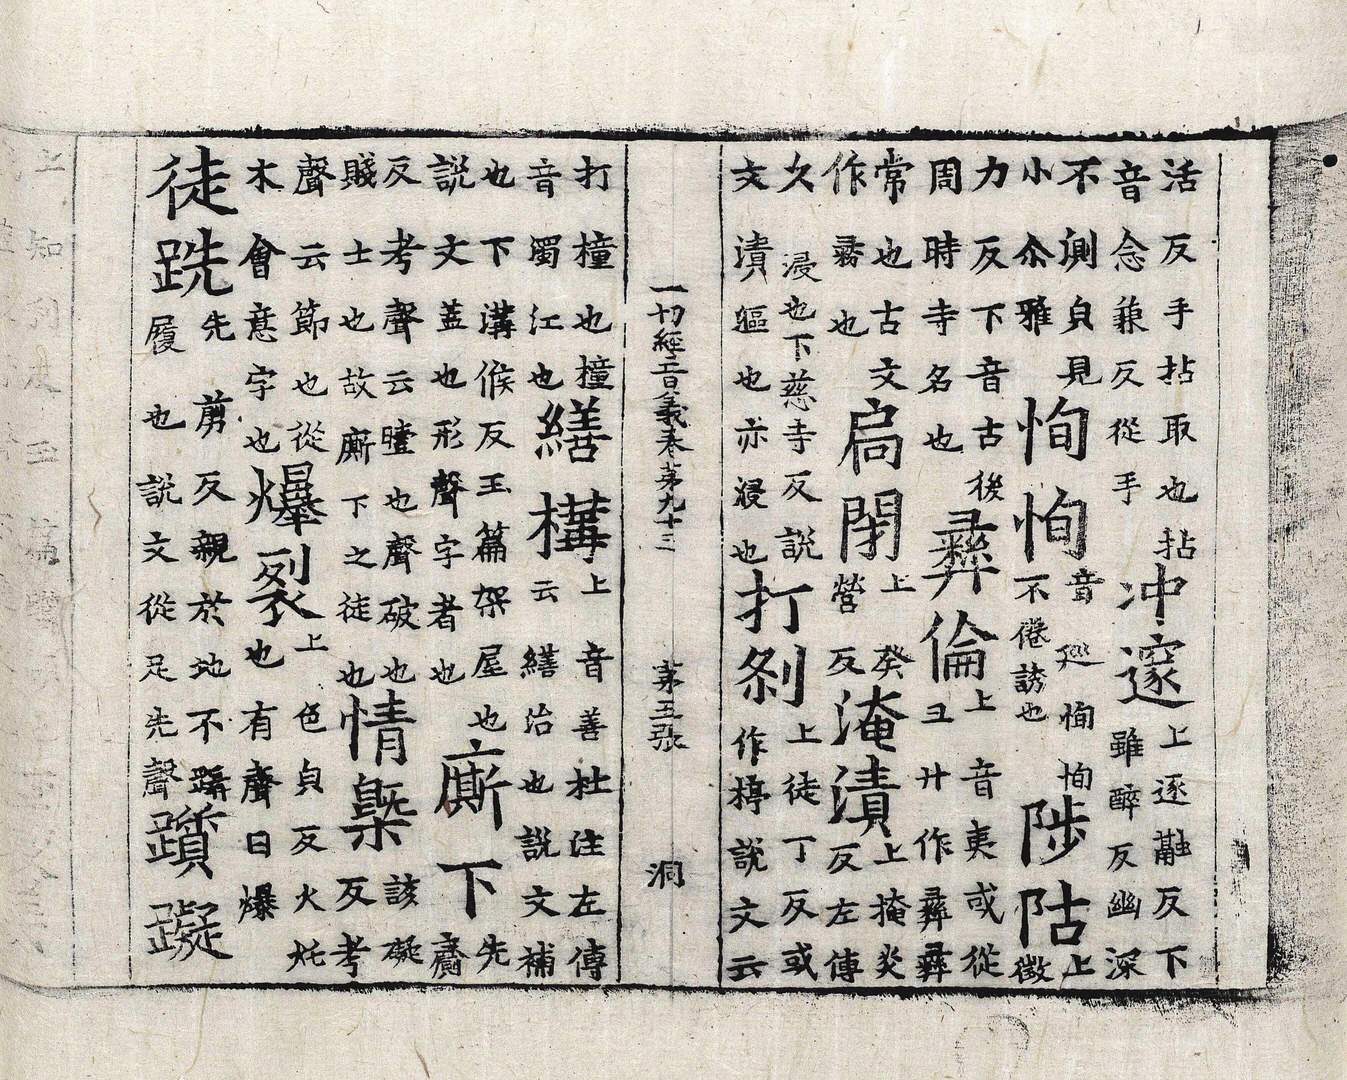 活反手拈取也拈沖邃上逐融反下
音念兼反從手雖醉反幽深
不測皃見恂恂音廵恂恂陟岵上
小尒雅不倦誘也徵
力反下音古後彝倫上音夷或從
周時寺名也彑廾作彞彝
常也古文扃閉上癸淹漬上掩炎
作彞也營反反左傳
久浸也下慈寺反說打刹上徒丁反或
文漬漚也亦浸也作樗說文云
一切經音義卷第九十三　第五張　洞
打橦也橦繕構上音善杜注左傳
音濁江也云繕治也說文補
也下溝候反玉篇架屋也廝下先
說文蓋也形聲字者也齎
反考聲云噎也聲破也情槩該礙
賤士也故廝下之徒也反考
聲云節也從爆裂上色皃反火烞
木會意字也也有聲曰爆
徒跣先剪反親於地不躡躓礙
履也說文從足先聲